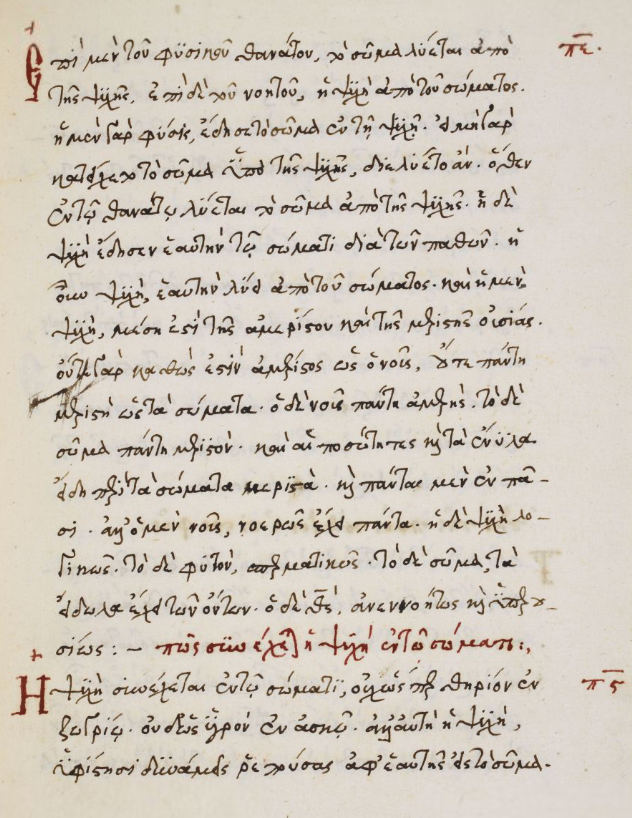 Ἐπὶ μὲν τοῦ φυσικοῦ θανάτου, τὸ σῶμα λύεται ἀπὸ πε.
τῆς ψυχῆς, ἐπὶ δὲ τοῦ νοητοῦ, ἡ ψυχὴ ἀπὸ τοῦ σώματος.
ἡ μὲν γὰρ φύσις, ἔδησε τὸ σῶμα ἐν τῇ ψυχῇ. εἰ μὴ γὰρ
κατείχετο τὸ σῶμα ὑπὸ τῆς ψυχῆς, διελύετο ἄν. ὅθεν
ἐν τῷ θανάτῳ λύεται τὸ σῶμα ἀπὸ τῆς ψυχῆς. ἡ δὲ
ψυχὴ ἔδησεν ἑαυτὴν τῷ σώματι διὰ τῶν παθῶν. ἡ
ψυχὴ, ἑαυτὴν λύει ἀπὸ τοῦ σώματος. καὶ ἡ μὲν
ψυχὴ, μέση ἐστὶ τῆς ἀμερίστου καὶ τῆς μεριστῆς οὐσίας.
οὔτε γὰρ καθὼς ἐστὶν ἀμέριστος ὡς ὁ νοῦς, οὔτε πάντη
μεριστὴ ὡς τὰ σώματα. ὁ δὲ νοῦς πάντη ἀμερὴς. τὸ δὲ
σῶμα πάντη μεριστόν. καὶ αἱ ποσότητες καὶ τὰ ἔνυλα
εἴδη περὶ τὰ σώματα μεριστὰ. καὶ πάντα μὲν ἐν πᾶ-
σι. ἀλλ' ὁ μὲν νοῦς, νοερῶς ἔχει πάντα. ἡ δὲ ψυχὴ λο-
γικῶς. τὸ δὲ φυτὸν, σπερματικῶς. τὸ δὲ σῶμα, τὰ
εἴδωλα ἔχει τῶν ὄντων. ὁ δὲ θς, ἀνεννοήτως καὶ ὑπερου-
σίως :- πῶς συνέχεται ἡ ψυχὴ ἐν τῷ σώματι :,
Ἡ ψυχὴ συνέχεται ἐν τῷ σώματι, οὐχ ὡς περ θηρίον ἐν πϛ
ζωγρίῳ. οὐδ' ὡς ὑγρὸν ἐν ἀσκῷ. ἀλλ' αὐτὴ ἡ ψυχὴ,
ὑφίστησι δυνάμεις ῥεπούσας ἀφ' ἑαυτῆς εἰς τὸ σῶμα.